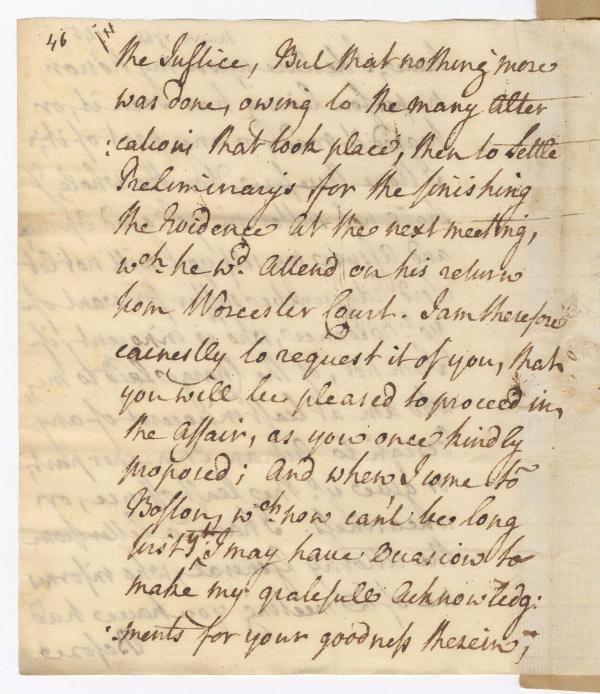 46
the Justice, But that nothing more
was done, owing to the many alter
:cations that took place, then to Settle
Preliminarys for the finishing
the Evidence at the next meeting,
wch. he wd. attend on his return
from Worcester Court. I am therefore
earnestly to request it of you, that
you will be pleased to proceed in
the Affair, as you once kindly
proposed; And when I come to
Boston, wch now can't be long
first, I may have Occasion to
make my gratefull Acknowledg:
:ments for your goodness therein,